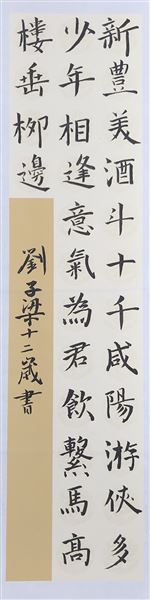 新豐美酒斗十千咸陽游俠多
少年相逢意氣為君飲繫馬高
樓垂柳邊
劉子梁十二歲書